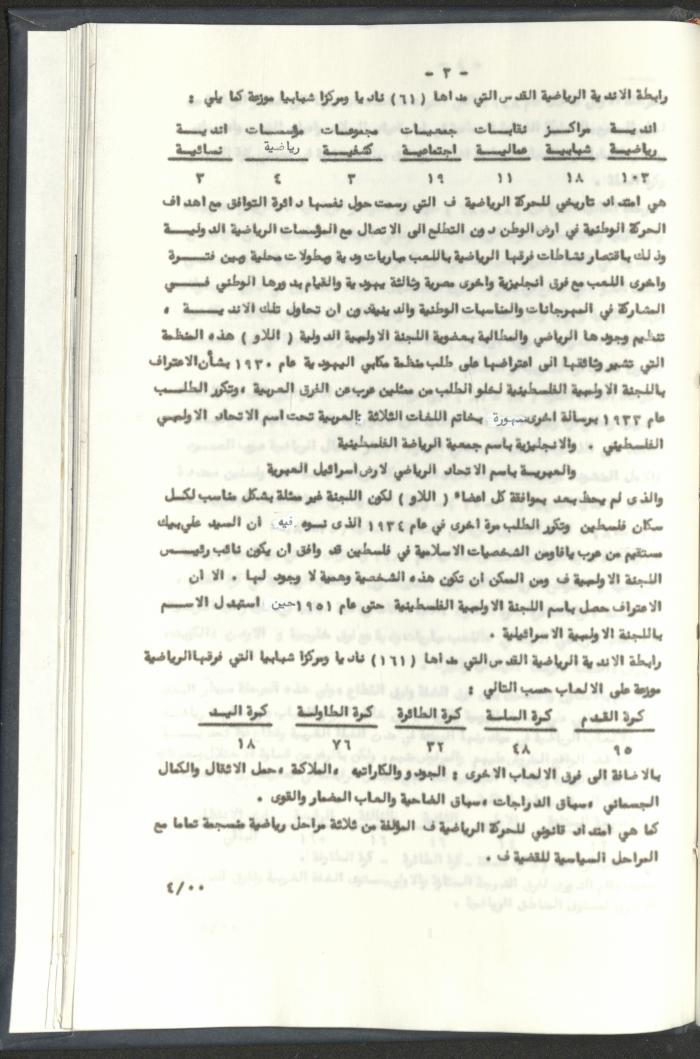 - ٣ -
رابطة الاندية الرياضية القدس التي مداها (٦١) ناديا ومركزا شبابيا موزعة كما يلي :
اندية مراكز نقابات جمعيات مجموعات مؤسسات اندية
رياضية شبابية عمالية اجتماعية كشفية رياضية نسائية
١٠٣ ١٨ ١١ ١٩ ٣ ٤ ٣
هي امتداد تاريخي للحركة الرياضية ف التي رسمت حول نفسها دائرة التوافق مع اهداف
الحركة الوطنية في ارض الوطن دون التطلع الى الاتصال مع المؤسسات الرياضية الدولية
وذلك باقتصار نشاطات فرقها الرياضية باللعب مباريات ودية وبطولات محلية وبين فترة
واخرى اللعب مع فرق انجليزية واخرى مصرية وثالثة يهودية والقيام بدورها الوطني في
المشاركة في المهرجانات والمناسبات الوطنية والدينية دون ان تحاول تلك الاندية ،
تنظيم وجودها الرياضي والمطالبة بعضوية اللجنة الاولمبية الدولية ( اللاو ) هذه المنظمة
التي تشير وثائقها الى اعتراضها على طلب منظمة مكابي اليهودية عام ١٩٣٠ بشأن الاعتراف
باللجنة الاولمبية الفلسطينية لخلو الطلب من ممثلين عرب عن الفرق العربية ، وتكرر الطلب
عام ١٩٣٣ برسالة اخرى مبهورة بخاتم اللغات الثلاثة : العربية تحت اسم الاتحاد الاولمبي
الفلسطيني . والانجليزية باسم جمعية الرياضة الفلسطينية
والعبرية باسم الاتحاد الرياضي لارض اسرائيل العبرية
والذى لم يحظ بعد بموافقة كل اعضاء ( اللاو ) لكون اللجنة غير ممثلة بشكل مناسب لكل
سكان فلسطين وتكرر الطلب مرة اخرى في عام ١٩٣٤ الذى نسوه فيه ان السيد علي بيك
مستقيم من عرب يافا ومن الشخصيات الاسلامية في فلسطين قد وافق ان يكون نائب رئيس
اللجنة الاولمبية ف ومن الممكن ان تكون هذه الشخصية وهمية لا وجود لها . الا ان
الاعتراف حصل باسم اللجنة الاولمبية الفلسطينية حتى عام ١٩٥١ حين استبدل الاسم
باللجنة الاولمبية الاسرائيلية .
رابطة الاندية الرياضية القدس التي مداها (١٦١) ناديا ومركزا شبابيا التي فرقها الرياضية
موزعة على الالعاب حسب التالي :
كرة القدم كرة السلة كرة الطائرة كرة الطاولة كرة اليد
٩٥ ٤٨ ٣٢ ٧٦ ١٨
بالاضافة الى فرق الالعاب الاخرى : الجودو والكاراتيه ، الملاكمة ، حمل الاثقال والكمال
الجسماني ، سباق الدراجات ، سباق الضاحية والعاب المضمار والقوى .
كما هي امتداد قانوني للحركة الرياضية ف المؤلفة من ثلاثة مراحل رياضية منسجمة تماما مع
المراحل السياسية للقضية ف .
٤/٠٠